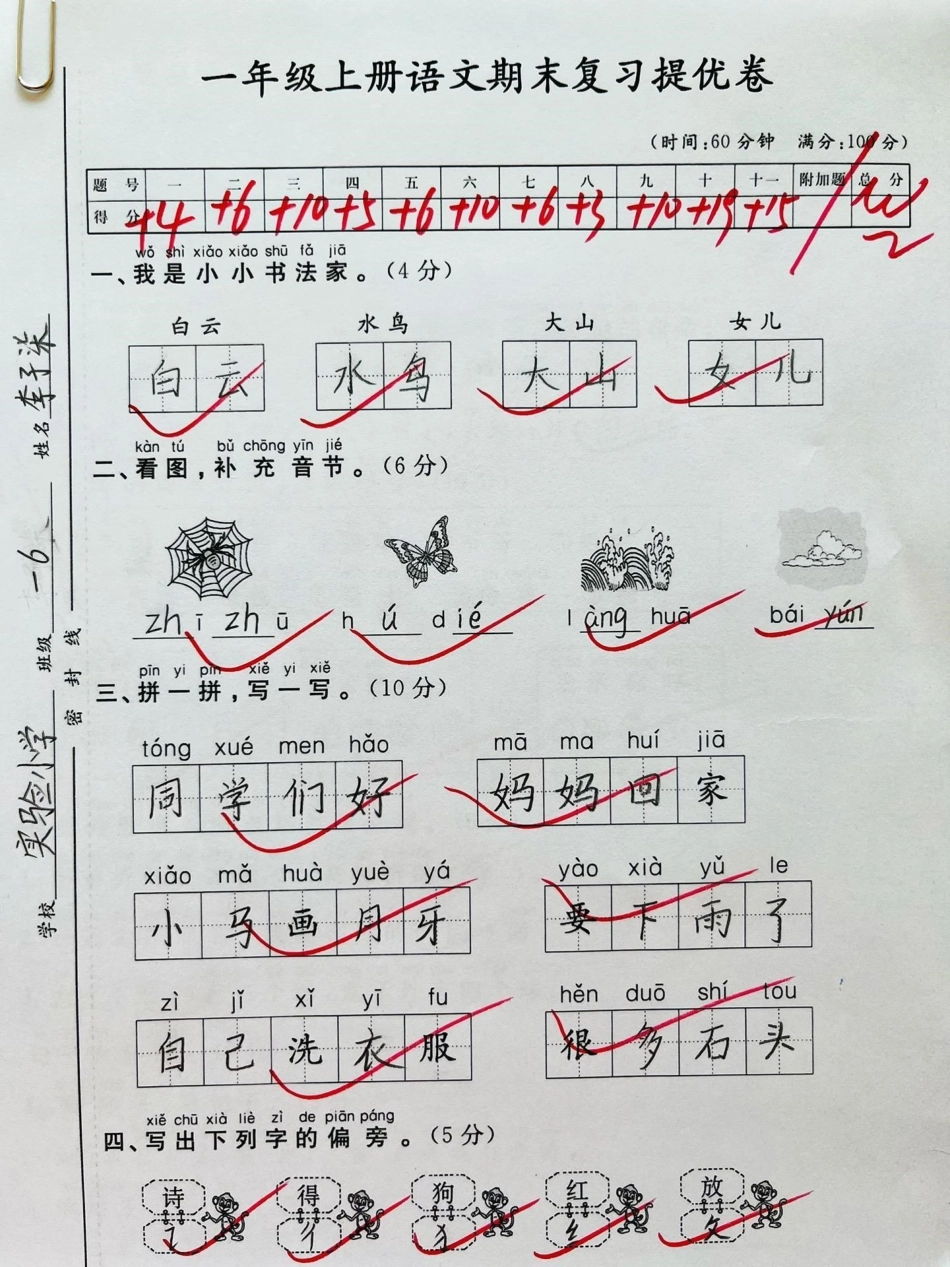 一年级上册语文期末复习提优卷
(时间:60分钟 满分:100分)
题号 一 二 三 四 五 六 七 八 九 十 十一 附加题 总分
得分 +4 +6 +10 +5 +6 +10 +6 +3 +10 +19 +15
wǒ shì xiǎo xiǎo shū fǎ jiā
一、我是小小书法家。(4分)
白云 水鸟 大山 女儿
白云 水鸟 大山 女儿
kàn tú bǔ chōng yīn jié
二、看图,补充音节。(6分)
zh ī zh ū h ú d ié l àng huā bái yún
pīn yi pīn xiě yi xiě
三、拼一拼,写一写。(10分)
tóng xué men hǎo mā ma huí jiā
同学们好 妈妈回家
xiǎo mǎ huà yuè yá yào xià yǔ le
小马画月牙 要下雨了
zì jǐ xǐ yī fu hěn duō shí tou
自己洗衣服 很多石头
xiě chū xià liè zì de piān páng
四、写出下列字的偏旁。(5分)
诗 得 狗 红 放
讠 彳 犭 纟 攵
学校 实验小学 班级 一6 姓名 李子柒
密封线